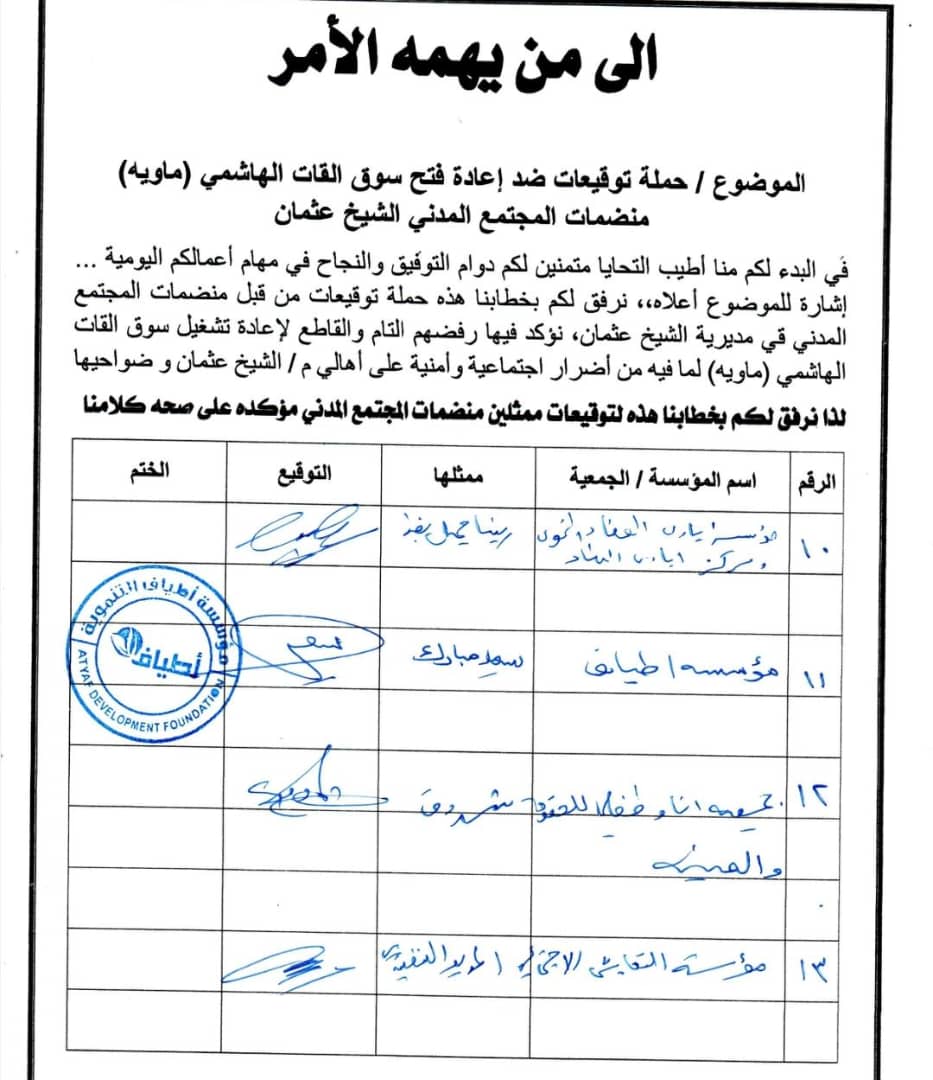 الى من يهمه الأمر
الموضوع / حملة توقيعات ضد إعادة فتح سوق القات الهاشمي (ماويه)
منضمات المجتمع المدني الشيخ عثمان
في البدء لكم منا أطيب التحايا متمنين لكم دوام التوفيق والنجاح في مهام أعمالكم اليومية ...
إشارة للموضوع أعلاه،، نرفق لكم بخطابنا هذه حملة توقيعات من قبل منضمات المجتمع
المدني قي مديرية الشيخ عثمان، نؤكد فيها رفضهم التام والقاطع لإعادة تشغيل سوق القات
الهاشمي (ماويه) لما فيه من أضرار اجتماعية وأمنية على أهالي م / الشيخ عثمان و ضواحيها
لذا نرفق لكم بخطابنا هذه لتوقيعات ممثلين منضمات المجتمع المدني مؤكده على صحه كلامنا
الرقم اسم المؤسسة / الجمعية ممثلها التوقيع الختم
١٠ مؤسسة
ومركز
١١ مؤسسه اطياف سعد مبارك
مؤسسة أطياف التنموية
أطياف
ATYAF DEVELOPMENT FOUNDATION
١٢ جمعيه انا وطفلي للحقوق
١٣ مؤسسة التعايش